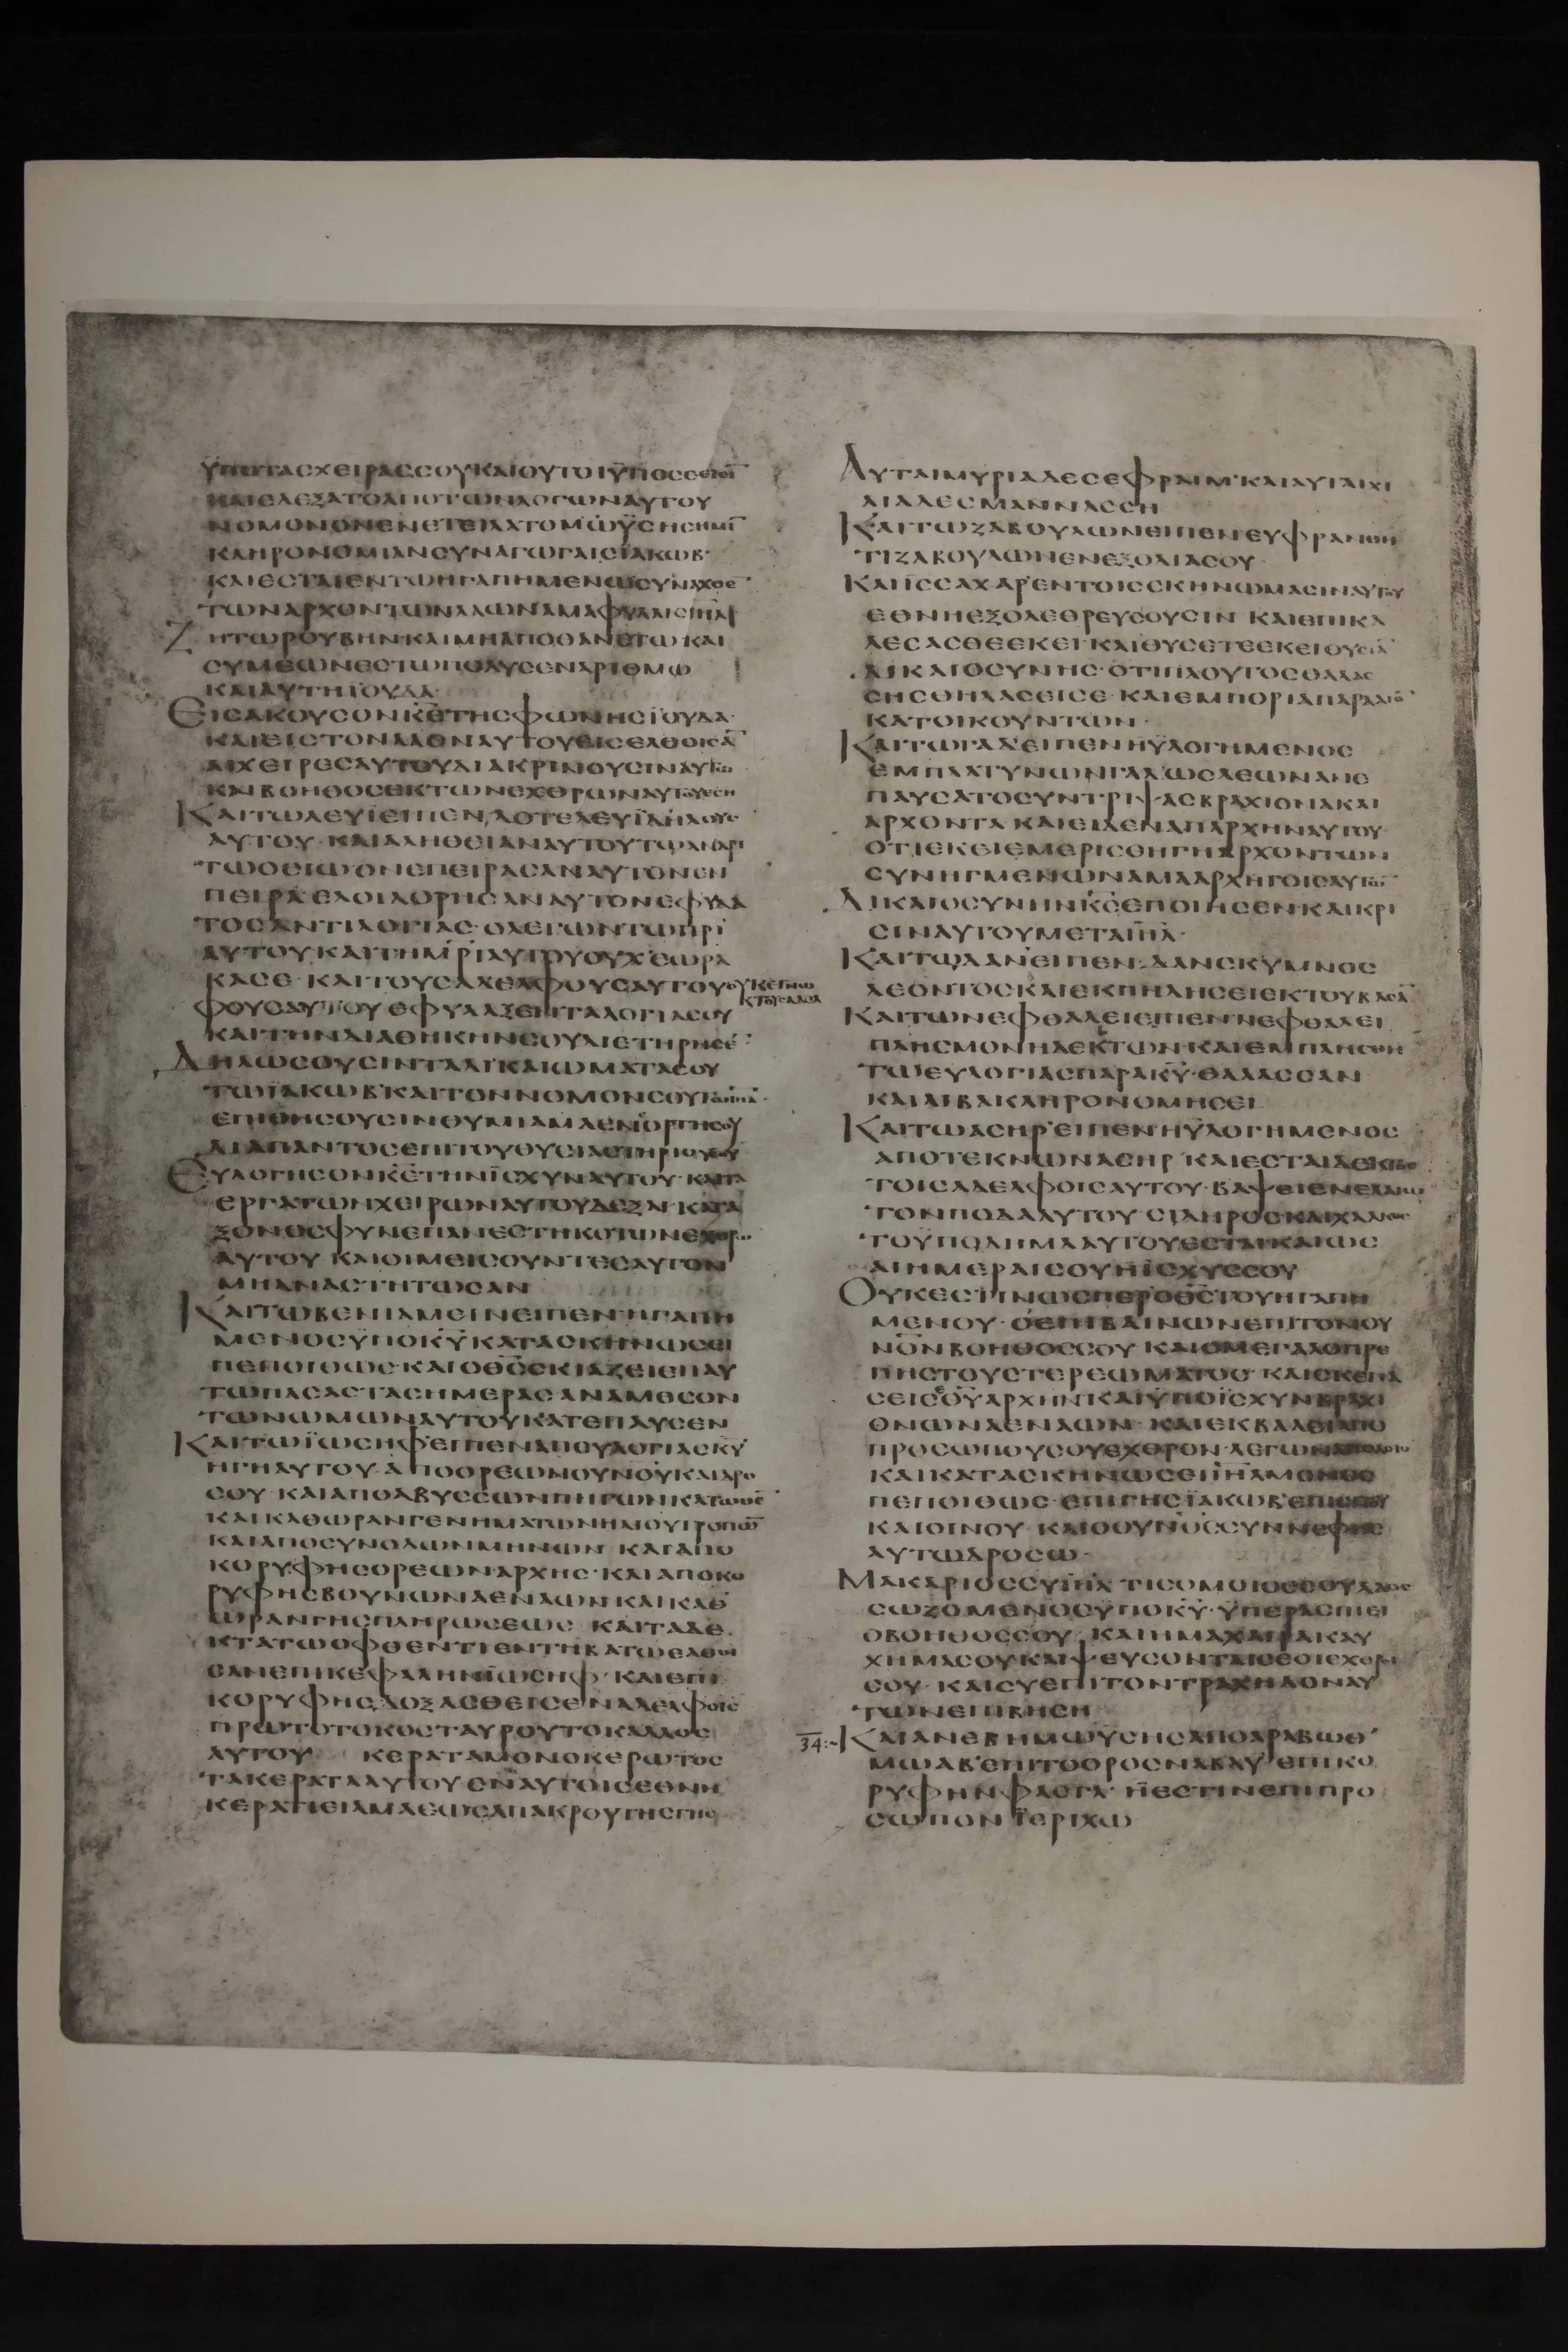 ΥΠΟΤΑΣΧΕΙΡΑΣΣΟΥΚΑΙΟΥΤΟΙΥΠΟΣΕ
ΚΑΙΕΔΕΞΑΤΟΑΠΟΤΩΝΛΟΓΩΝΑΥΤΟΥ
ΝΟΜΟΝΟΝΕΝΕΤΕΙΛΑΤΟΜΩΫΣΗΣΗΜΙ̅
ΚΛΗΡΟΝΟΜΙΑΝΣΥΝΑΓΩΓΑΙΣΪΑΚΩΒ·
ΚΑΙΕΣΤΑΙΕΝΤΩΗΓΑΠΗΜΕΝΩΣΥΝΑΧΘΕ̅
ΤΩΝΑΡΧΟΝΤΩΝΛΑΩΝΑΜΑΦΥΛΑΙΣΙΗ̅Λ
ΖΗΤΩΡΟΥΒΗΝ·ΚΑΙΜΗΑΠΟΘΑΝΕΤΩΚΑΙ
ΣΥΜΕΩΝΕΣΤΩΠΟΛΥΣΕΝΑΡΙΘΜΩ
ΚΑΙΑΥΤΗΪΟΥΔΑ·
ΕΙΣΑΚΟΥΣΟΝΚ̅Ε̅ΤΗΣΦΩΝΗΣΪΟΥΔΑ·
ΚΑΙΕΙΣΤΟΝΛΑΟΝΑΥΤΟΥΕΙΣΕΛΘΟΙΣΑ̅
ΑΙΧΕΙΡΕΣΑΥΤΟΥΔΙΑΚΡΙΝΟΥΣΙΝΑΥΤΩ
ΚΑΙΒΟΗΘΟΣΕΚΤΩΝΕΧΘΡΩΝΑΥΤΟΥΕΣΗ
ΚΑΙΤΩΛΕΥΪΕΙΠΕΝ,ΔΟΤΕΛΕΥΪΔΗΛΟΥΣ
ΑΥΤΟΥ·ΚΑΙΑΛΗΘΕΙΑΝΑΥΤΟΥΤΩΑΝΔΡΙ
ΤΩΟΣΙΩΟΝΕΠΕΙΡΑΣΑΝΑΥΤΟΝΕΝ
ΠΕΙΡΑ·ΕΛΟΙΔΟΡΗΣΑΝΑΥΤΟΝΕΦΥΔΑ
ΤΟΣΑΝΤΙΛΟΓΙΑΣ·ΟΛΕΓΩΝΤΩΠ̅Ρ̅Ι̅
ΑΥΤΟΥΚΑΙΤΗΜ̅Ρ̅Ι̅ΑΥΤΟΥΟΥΧΕΩΡΑ
ΚΑΣΕ·ΚΑΙΤΟΥΣΑΔΕΛΦΟΥΣΑΥΤΟΥΟΥΚΕΓΝΩ
ΦΟΥΣΑΥΤΟΥΕΦΥΛΑΞΕΝΤΑΛΟΓΙΑΣΟΥ
ΚΑΙΤΗΝΔΙΑΘΗΚΗΝΣΟΥΔΙΕΤΗΡΗΣΕ̅
ΔΗΛΩΣΟΥΣΙΝΤΑΔΙΚΑΙΩΜΑΤΑΣΟΥ
ΤΩΪΑΚΩΒ·ΚΑΙΤΟΝΝΟΜΟΝΣΟΥΤΩΙ̅Η̅Λ̅·
ΕΠΙΘΗΣΟΥΣΙΝΘΥΜΙΑΜΑΕΝΟΡΓΗΣΟΥ
ΔΙΑΠΑΝΤΟΣΕΠΙΤΟΥΘΥΣΙΑΣΤΗΡΙΟΥΣΟΥ
ΕΥΛΟΓΗΣΟΝΚ̅Ε̅ΤΗΝΪΣΧΥΝΑΥΤΟΥ·ΚΑΙΤΑ
ΕΡΓΑΤΩΝΧΕΙΡΩΝΑΥΤΟΥΔΕΞΑΙ·ΚΑΤΑ
ΞΟΝΟΣΦΥΝΕΠΑΝΕΣΤΗΚΟΤΩΝΕΧΘΡΩ̅
ΑΥΤΟΥΚΑΙΟΙΜΕΙΣΟΥΝΤΕΣΑΥΤΟΝ
ΜΗΑΝΑΣΤΗΤΩΣΑΝ
ΚΑΙΤΩΒΕΝΙΑΜΕΙΝΕΙΠΕΝ·ΗΓΑΠΗ
ΜΕΝΟΣΥΠΟΚ̅Υ̅ΚΑΤΑΣΚΗΝΩΣΕΙ
ΠΕΠΟΙΘΩΣ·ΚΑΙΟΘ̅Σ̅ΣΚΙΑΖΕΙΕΠΑΥ
ΤΩΠΑΣΑΣΤΑΣΗΜΕΡΑΣΑΝΑΜΕΣΟΝ
ΤΩΝΩΜΩΝΑΥΤΟΥΚΑΤΕΠΑΥΣΕΝ
ΚΑΙΤΩΪΩΣΗΦ·ΕΙΠΕΝΑΠΕΥΛΟΓΙΑΣΚ̅Υ̅
ΗΓΗΑΥΤΟΥ·ΑΠΟΟΡΕΩΝΟΥΝΟΥΚΑΙΔΡΟ
ΣΟΥ·ΚΑΙΑΠΟΑΒΥΣΣΩΝΠΗΓΩΝΚΑΤΩΘΕ̅
ΚΑΙΚΑΘΩΡΑΝΓΕΝΗΜΑΤΩΝΗΛΙΟΥΤΡΟΠΩ̅
ΚΑΙΑΠΟΣΥΝΟΔΩΝΜΗΝΩΝ·ΚΑΙΑΠΟ
ΚΟΡΥΦΗΣΟΡΕΩΝΑΡΧΗΣ·ΚΑΙΑΠΟΚΟ
ΡΥΦΗΣΒΟΥΝΩΝΑΕΝΑΩΝΚΑΙΚΑΘ
ΩΡΑΝΓΗΣΠΛΗΡΩΣΕΩΣ·ΚΑΙΤΑΔΕ
ΚΤΑΤΩΟΦΘΕΝΤΙΕΝΤΗΒΑΤΩΕΛΘΟΙ
ΣΑΝΕΠΙΚΕΦΑΛΗΝΪΩΣΗΦ·ΚΑΙΕΠΙ
ΚΟΡΥΦΗΣ,ΔΟΞΑΣΘΕΙΣΕΝΑΔΕΛΦΟΙΣ
ΠΡΩΤΟΤΟΚΟΣΤΑΥΡΟΥΤΟΚΑΛΛΟΣ
ΑΥΤΟΥ ΚΕΡΑΤΑΜΟΝΟΚΕΡΩΤΟΣ
ΤΑΚΕΡΑΤΑΑΥΤΟΥΕΝΑΥΤΟΙΣΕΘΝΗ
ΚΕΡΑΤΙΕΙΑΜΑΕΩΣΑΠΑΚΡΟΥΓΗΣΓΗΣ
ΑΥΤΑΙΜΥΡΙΑΔΕΣΕΦΡΑΙΜ·ΚΑΙΑΥΤΑΙΧΙ
ΛΙΑΔΕΣΜΑΝΝΑΣΣΗ
ΚΑΙΤΩΖΑΒΟΥΛΩΝΕΙΠΕΝ·ΕΥΦΡΑΝΘΗ
ΤΙΖΑΒΟΥΛΩΝΕΝΕΞΟΔΙΑΣΟΥ·
ΚΑΙΪΣΣΑΧΑΡ·ΕΝΤΟΙΣΣΚΗΝΩΜΑΣΙΝΑΥΤΟΥ
ΕΘΝΗΕΞΟΛΕΘΡΕΥΣΟΥΣΙΝ ΚΑΙΕΠΙΚΑ
ΛΕΣΑΣΘΕΕΚΕΙ·ΚΑΙΘΥΣΕΤΕΕΚΕΙΘΥΣΙΑ̅
ΔΙΚΑΙΟΣΥΝΗΣ·ΟΤΙΠΛΟΥΤΟΣΘΑΛΑΣ
ΣΗΣΘΗΛΑΣΕΙΣΕ·ΚΑΙΕΜΠΟΡΙΑΠΑΡΑΛΙΟ̅
ΚΑΤΟΙΚΟΥΝΤΩΝ·
ΚΑΙΤΩΓΑΔ·ΕΙΠΕΝΗΥΛΟΓΗΜΕΝΟΣ
ΕΜΠΛΑΤΥΝΩΝΓΑΔ·ΩΣΛΕΩΝΑΝΕ
ΠΑΥΣΑΤΟΣΥΝΤΡΙΨΑΣΒΡΑΧΙΟΝΑΚΑΙ
ΑΡΧΟΝΤΑ·ΚΑΙΕΙΔΕΝΑΠΑΡΧΗΝΑΥΤΟΥ·
ΟΤΙΕΚΕΙΕΜΕΡΙΣΘΗΓΗΑΡΧΟΝΤΩΝ
ΣΥΝΗΓΜΕΝΩΝΑΜΑΑΡΧΗΓΟΙΣΛΑΩ̅
ΔΙΚΑΙΟΣΥΝΗΝΚ̅Σ̅ΕΠΟΙΗΣΕΝ·ΚΑΙΚΡΙ
ΣΙΝΑΥΤΟΥΜΕΤΑΙ̅Η̅Λ̅·
ΚΑΙΤΩΔΑΝ·ΕΙΠΕΝ·ΔΑΝΣΚΥΜΝΟΣ
ΛΕΟΝΤΟΣΚΑΙΕΚΠΗΔΗΣΕΙΕΚΤΟΥΒΑΣΑ̅
ΚΑΙΤΩΝΕΦΘΑΛΕΙΕΙΠΕΝ·ΝΕΦΘΑΛΕΙ
ΠΛΗΣΜΟΝΗΔΕΚΤΩΝ·ΚΑΙΕΜΠΛΗΣΘΗ
ΤΩΕΥΛΟΓΙΑΣΠΑΡΑΚ̅Υ̅·ΘΑΛΑΣΣΑΝ
ΚΑΙΛΙΒΑΚΛΗΡΟΝΟΜΗΣΕΙ
ΚΑΙΤΩΑΣΗΡ·ΕΙΠΕΝΗΥΛΟΓΗΜΕΝΟΣ
ΑΠΟΤΕΚΝΩΝΑΣΗΡ ΚΑΙΕΣΤΑΙΔΕΚΤΟΣ
ΤΟΙΣΑΔΕΛΦΟΙΣΑΥΤΟΥ·ΒΑΨΕΙΕΝΕΛΑΙΩ
ΤΟΝΠΟΔΑΑΥΤΟΥ·ΣΙΔΗΡΟΣΚΑΙΧΑΛΚΟΣ
ΤΟΥΠΟΔΗΜΑΑΥΤΟΥΕΣΤΑΙ·ΚΑΙΩΣ
ΑΙΗΜΕΡΑΙΣΟΥΗΪΣΧΥΣΣΟΥ
ΟΥΚΕΣΤΙΝΩΣΠΕΡΟΘ̅Σ̅ΤΟΥΗΓΑΠΗ
ΜΕΝΟΥ·ΟΕΠΙΒΑΙΝΩΝΕΠΙΤΟΝΟΥ
ΝΟΝΒΟΗΘΟΣΣΟΥ ΚΑΙΟΜΕΓΑΛΟΠΡΕ
ΠΗΣΤΟΥΣΤΕΡΕΩΜΑΤΟΣ ΚΑΙΣΚΕΠΑ
ΣΕΙΣΘ̅Υ̅ΑΡΧΗΝΚΑΙΫΠΟΪΣΧΥΝΒΡΑΧΙ
ΟΝΩΝΑΕΝΑΩΝ·ΚΑΙΕΚΒΑΛΕΙΑΠΟ
ΠΡΟΣΩΠΟΥΣΟΥΕΧΘΡΟΝ·ΛΕΓΩΝΑΠΟΛΟΙΟ
ΚΑΙΚΑΤΑΣΚΗΝΩΣΕΙΙ̅Η̅Λ̅ΜΟΝΟΣ
ΠΕΠΟΙΘΩΣ·ΕΠΙΓΗΣΪΑΚΩΒ·ΕΠΙΣΙΤΟΥ
ΚΑΙΟΙΝΟΥ·ΚΑΙΟΟΥΝΟΣΣΥΝΝΕΦΗΣ
ΑΥΤΩΔΡΟΣΩ·
ΜΑΚΑΡΙΟΣΣΥΙ̅Η̅Λ̅·ΤΙΣΟΜΟΙΟΣΣΟΥΛΑΟΣ
ΣΩΖΟΜΕΝΟΣΫΠΟΚ̅Υ̅·ΫΠΕΡΑΣΠΙΕΙ
ΟΒΟΗΘΟΣΣΟΥ·ΚΑΙΗΜΑΧΑΙΡΑΚΑΥ
ΧΗΜΑΣΟΥΚΑΙΨΕΥΣΟΝΤΑΙΣΕΟΙΕΧΘΡΟΙ
ΣΟΥ·ΚΑΙΣΥΕΠΙΤΟΝΤΡΑΧΗΛΟΝΑΥ
ΤΩΝΕΠΙΒΗΣΗ
34:~ΚΑΙΑΝΕΒΗΜΩΫΣΗΣΑΠΟΑΡΑΒΩΘ
ΜΩΑΒ·ΕΠΙΤΟΟΡΟΣΝΑΒΑΥ·ΕΠΙΚΟ
ΡΥΦΗΝΦΑΣΓΑ·ΗΕΣΤΙΝΕΠΙΠΡΟ
ΣΩΠΟΝΪΕΡΙΧΩ